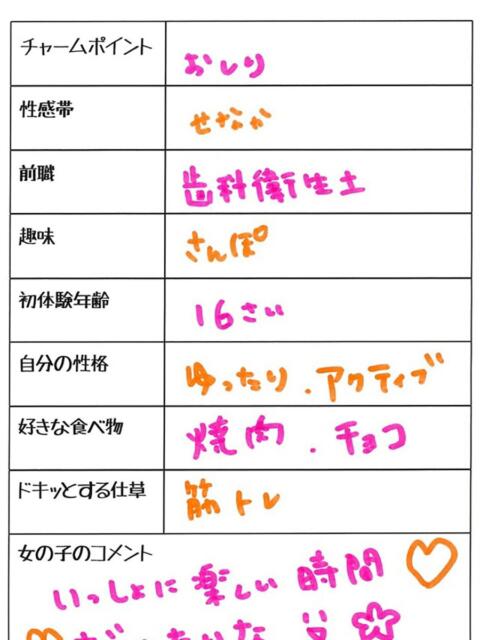 チャームポイント おしり
性感帯 せなか
前職 歯科衛生士
趣味 さんぽ
初体験年齢 16さい
自分の性格 ゆったり.アクティブ
好きな食べ物 焼肉.チョコ
ドキッとする仕草 筋トレ
女の子のコメント
いっしょに楽しい時間